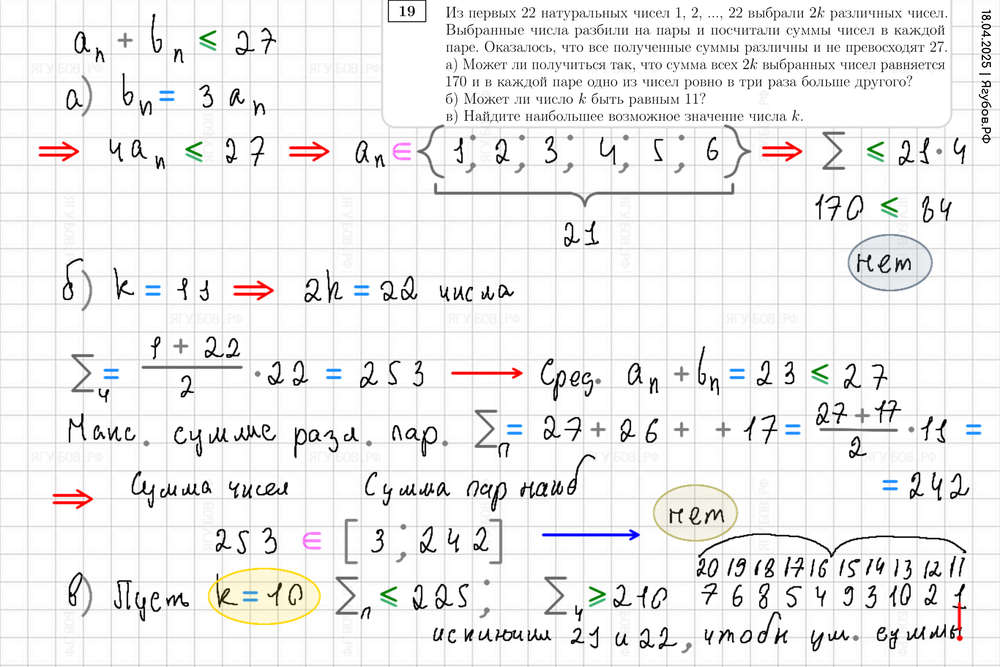 19 Из первых 22 натуральных чисел 1, 2, ..., 22 выбрали 2k различных чисел.
Выбранные числа разбили на пары и посчитали суммы чисел в каждой
паре. Оказалось, что все полученные суммы различны и не превосходят 27.
а) Может ли получиться так, что сумма всех 2k выбранных чисел равняется
170 и в каждой паре одно из чисел ровно в три раза больше другого?
б) Может ли число k быть равным 11?
в) Найдите наибольшее возможное значение числа k.
18.04.2025 | Ягубов.РФ
aₙ + bₙ ⩽ 27
а) bₙ = 3aₙ
⇒ 4aₙ ⩽ 27 ⇒ aₙ ∈ {1; 2; 3; 4; 5; 6} ⇒ ∑ ⩽ 21·4
21
170 ⩽ 84
нет
б) k = 11 ⇒ 2k = 22 числа
∑ч = (1 + 22)/2 · 22 = 253 → Сред. aₙ + bₙ = 23 ⩽ 27
Макс. сумме разл. пар. ∑п = 27 + 26 + + 17 = (27 + 17)/2 · 11 =
⇒ Сумма чисел Сумма пар наиб = 242
253 ∈ [3; 242] → нет
20 19 18 17 16 15 14 13 12 11
в) Пусть k = 10 ∑п ⩽ 225; ∑ч ⩾ 210 7 6 8 5 4 9 3 10 2 1
исключим 21 и 22, чтобы ум. суммы!